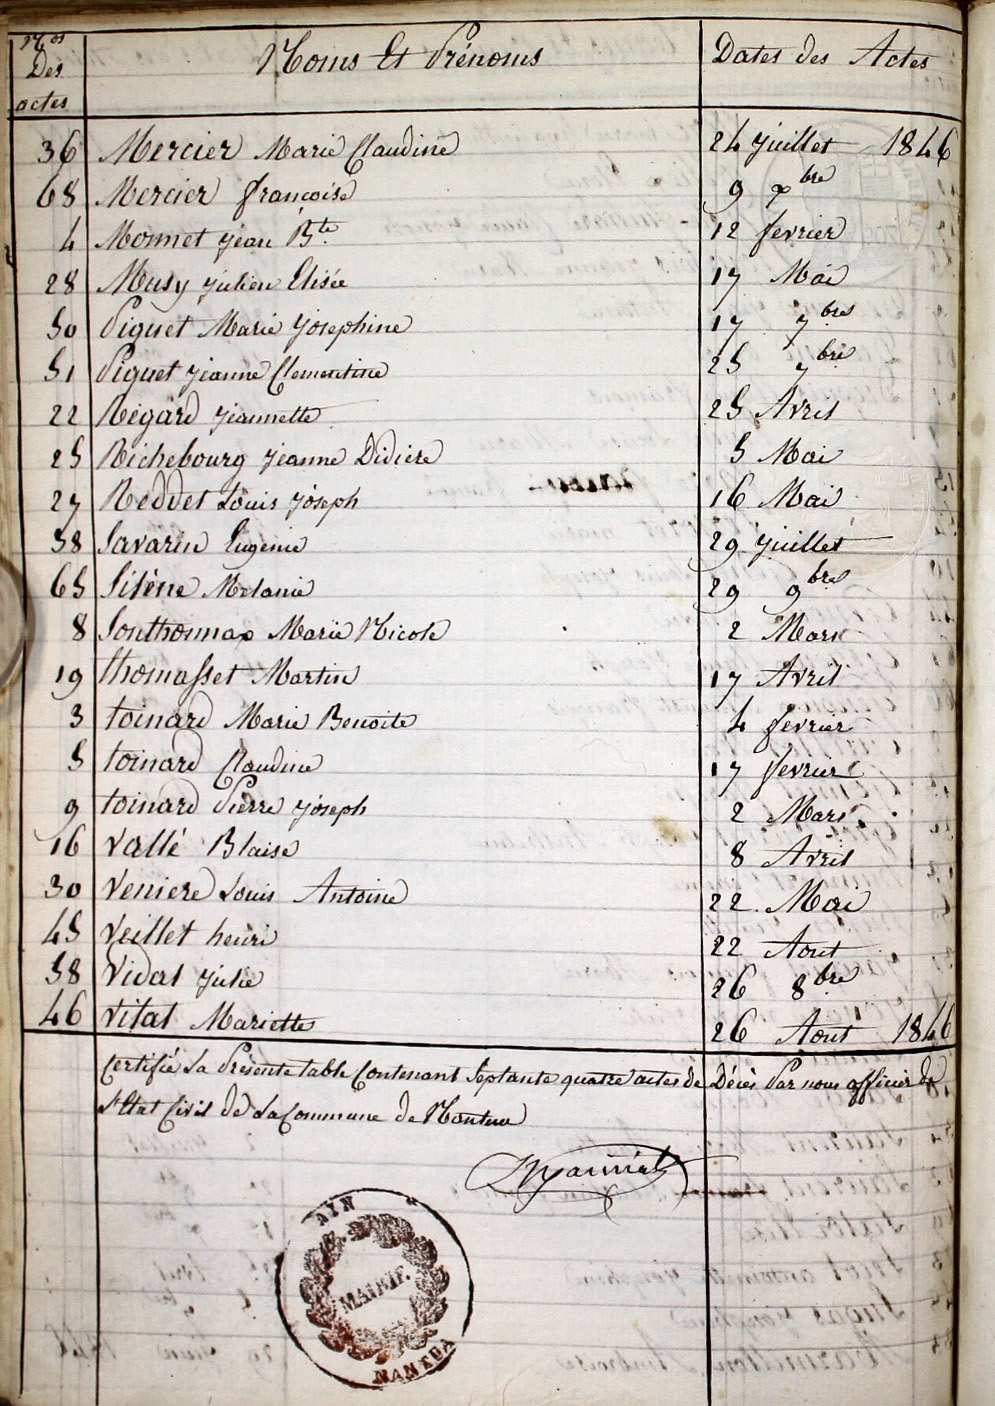 Nos Des actes | Noms Et Prénoms | Dates des Actes
36 Mercier Marie Claudine 24 Juillet 1846
68 Mercier françoise 9 xbre
4 Monnet jean Bte 12 fevrier
28 Musy julien Elisée 17 Mai
50 Piguet Marie Josephine 17 7bre
51 Piguet jeanne Clementine 25 7bre
22 Régard jeannette 25 Avril
25 Richebourg jeanne Didière 5 Mai
27 Reddet Louis joseph 16 Mai
38 Savarin Eugénie 29 Juillet
65 Silène Mélanie 29 9bre
8 Sonthonnax Marie Nicole 2 Mars
19 thomasset Martin 17 Avril
3 toinard Marie Benoite 4 fevrier
5 toinard Claudine 17 fevrier
9 toinard Pierre joseph 2 Mars
16 vallé Blaise 8 Avril
30 veniere Louis Antoine 22 Mai
45 veillet henri 22 Aout
58 vidal julie 26 8bre
46 vital Mariette 26 Aout 1846
Certifié La Présente table Contenant Septante quatre actes de Décès Par nous officier de
l'Etat Civil de La Commune de Nantua
AIN
MAIRIE
NANTUA